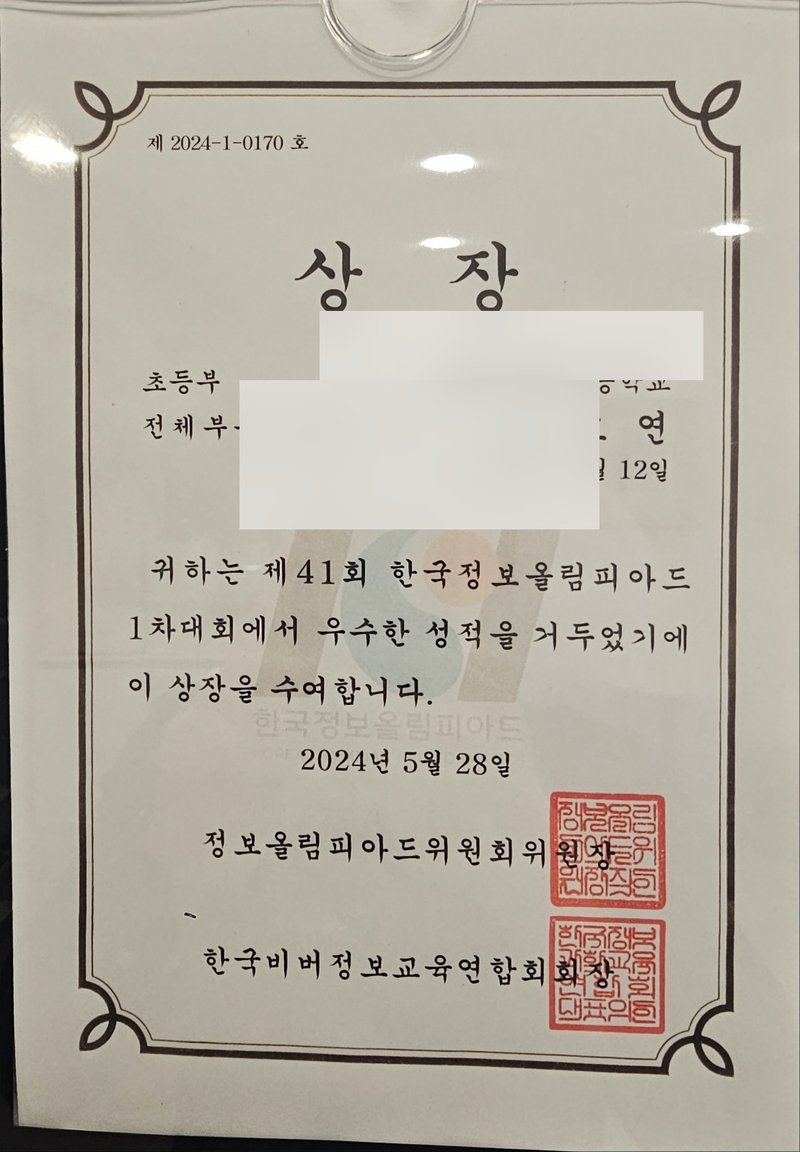 제 2024-1-0170 호
상 장
초등부
전체부
연
12일
귀하는 제41회 한국정보올림피아드
1차대회에서 우수한 성적을 거두었기에
이 상장을 수여합니다.
한국정보올림피아드
2024년 5월 28일
정보올림피아드위원회위원장
한국비버정보교육연합회회장